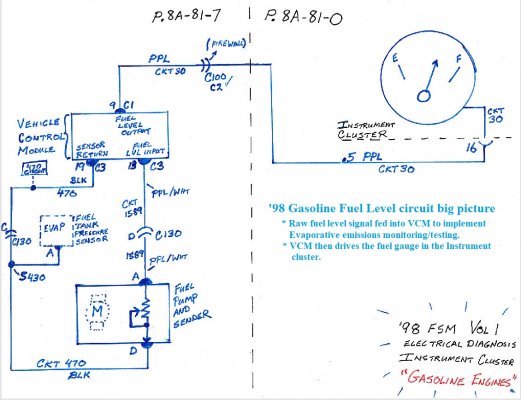 P.8A-81-7
P.8A-81-0
(FIREWALL)
PPL
CKT 30
C100
C2
E
F
CKT
30
9 C1
FUEL
LEVEL
OUTPUT
VEHICLE
CONTROL
MODULE
SENSOR
RETURN
FUEL
LVL INPUT
INSTRUMENT
CLUSTER
16
.5 PPL
CKT30
19
C3
C3
BLK
470
PPL/WHT
CKT
1589
C
C130
EVAP
FUEL
TANK
PRESSURE
SENSOR
A
D
C130
1589
PPL/WHT
S430
A
M
FUEL
PUMP
AND
SENDER
D
CKT 470
BLK
'98 Gasoline Fuel Level circuit big picture
* Raw fuel level signal fed into VCM to implement
Evaporative emissions monitoring/testing.
* VCM then drives the fuel gauge in the Instrument
cluster.
'98 FSM VOL 1
ELECTRICAL DIAGNOSIS
INSTRUMENT CLUSTER
"GASOLINE ENGINES"